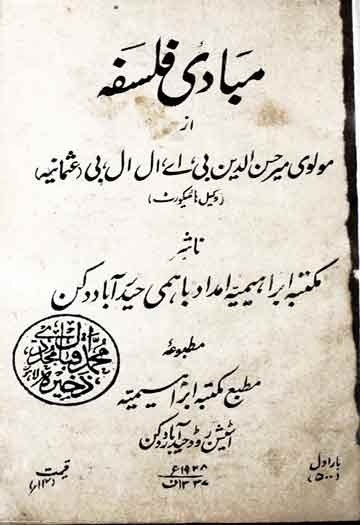 مبادئ فلسفہ
از
مولوی میر حسن الدین بی، اے، ال ال، بی (عثمانیہ)
(وکیل ہائیکورٹ)
ناشر
مکتبہ ابراہیمیہ امداد باہمی حیدرآباد دکن
مطبوعہ
مطبع مکتبہ ابراہیمیہ
اسٹیشن روڈ حیدرآباد دکن
بار اول
(۵۰۰)
۱۹۲۸ء
۱۳۳۷ف
قیمت
محمد اقبال مجددی
ذخیرہ